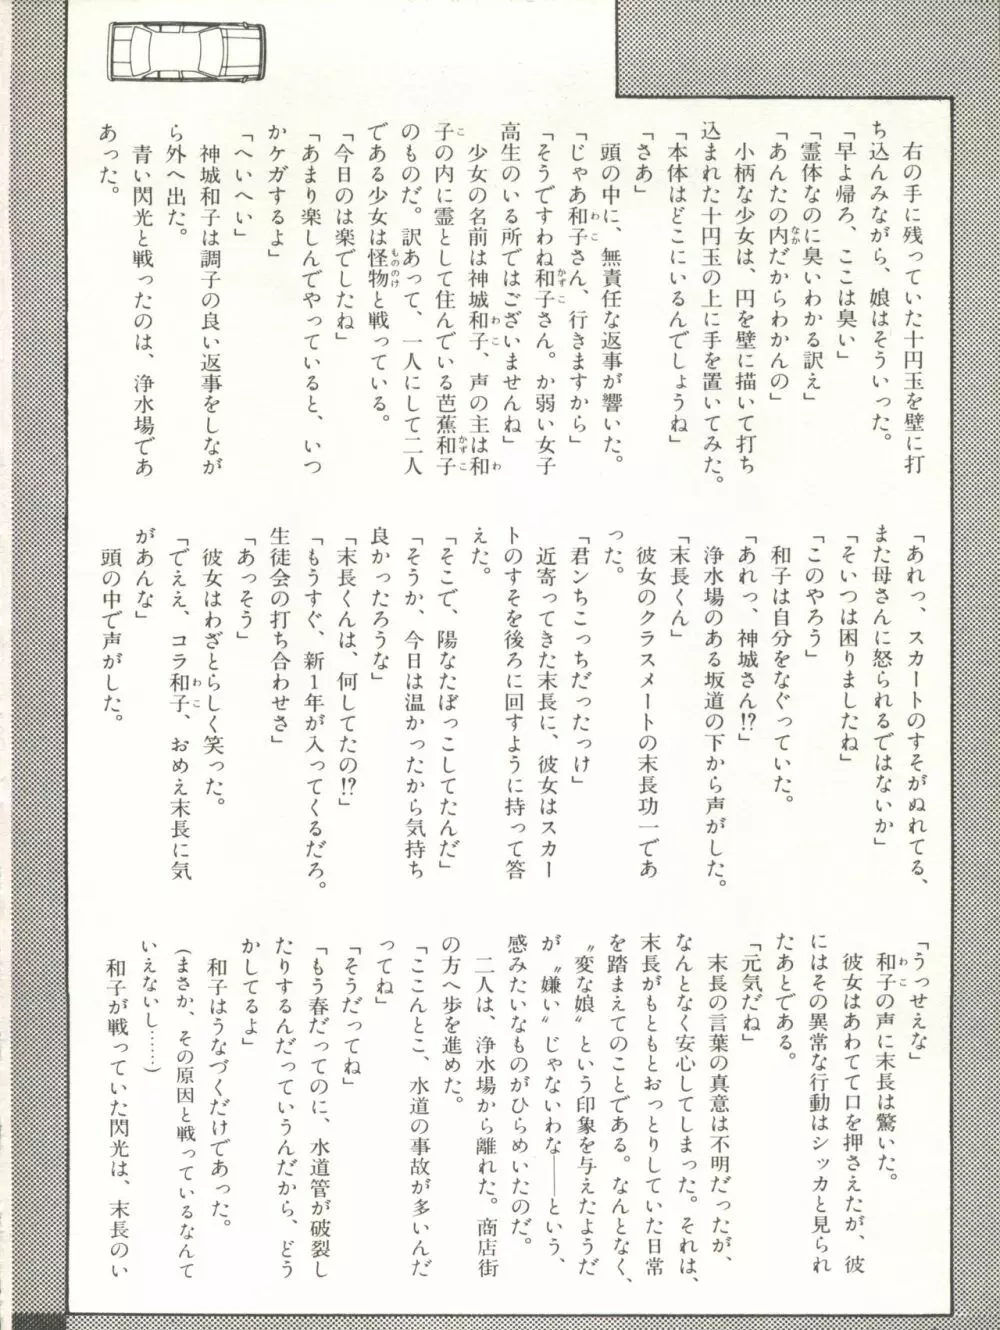 右の手に残っていた十円玉を壁に打
ち込んみながら、娘はそういった。
「早よ帰ろ、ここは臭い」
「霊体なのに臭いわかる訳ぇ」
「あんたの内だからわかんの」
小柄な少女は、円を壁に描いて打ち
込まれた十円玉の上に手を置いてみた。
「本体はどこにいるんでしょうね」
「さあ」
頭の中に、無責任な返事が響いた。
「じゃあ和子さん、行きますから」
「そうですわね和子さん。か弱い女子
高生のいる所ではございませんね」
少女の名前は神城和子、声の主は和
子の内に霊として住んでいる芭蕉和子
のものだ。訳あって、一人にして二人
である少女は怪物と戦っている。
「今日のは楽でしたね」
「あまり楽しんでやっていると、いつ
かケガするよ」
「へいへい」
神城和子は調子の良い返事をしなが
ら外へ出た。
青い閃光と戦ったのは、浄水場であ
あった。
「あれっ、スカートのすそがぬれてる、
また母さんに怒られるではないか」
「そいつは困りましたね」
「このやろう」
和子は自分をなぐっていた。
「あれっ、神城さん!?」
浄水場のある坂道の下から声がした。
「末長くん」
彼女のクラスメートの末長功一であ
った。
「君ンちこっちだったっけ」
近寄ってきた末長に、彼女はスカー
トのすそを後ろに回すように持って答
えた。
「そこで、陽なたぼっこしてたんだ」
「そうか、今日は温かったから気持ち
良かったろうな」
「末長くんは、何してたの!?」
「もうすぐ、新1年が入ってくるだろ。
生徒会の打ち合わせさ」
「あっそう」
彼女はわざとらしく笑った。
「でええ、コラ和子、おめえ末長に気
があんな」
頭の中で声がした。
「うっせえな」
和子の声に末長は驚いた。
彼女はあわてて口を押さえたが、彼
にはその異常な行動はシッカと見られ
たあとである。
「元気だね」
末長の言葉の真意は不明だったが、
なんとなく安心してしまった。それは、
末長がもともとおっとりしていた日常
を踏まえてのことである。なんとなく、
〝変な娘〟という印象を与えたようだ
が〝嫌い〟じゃないわな――という、
感みたいなものがひらめいたのだ。
二人は、浄水場から離れた。商店街
の方へ歩を進めた。
「ここんとこ、水道の事故が多いんだ
ってね」
「そうだってね」
「もう春だってのに、水道管が破裂し
たりするんだっていうんだから、どう
かしてるよ」
和子はうなづくだけであった。
(まさか、その原因と戦っているなんて
いえないし……)
和子が戦っていた閃光は、末長のい